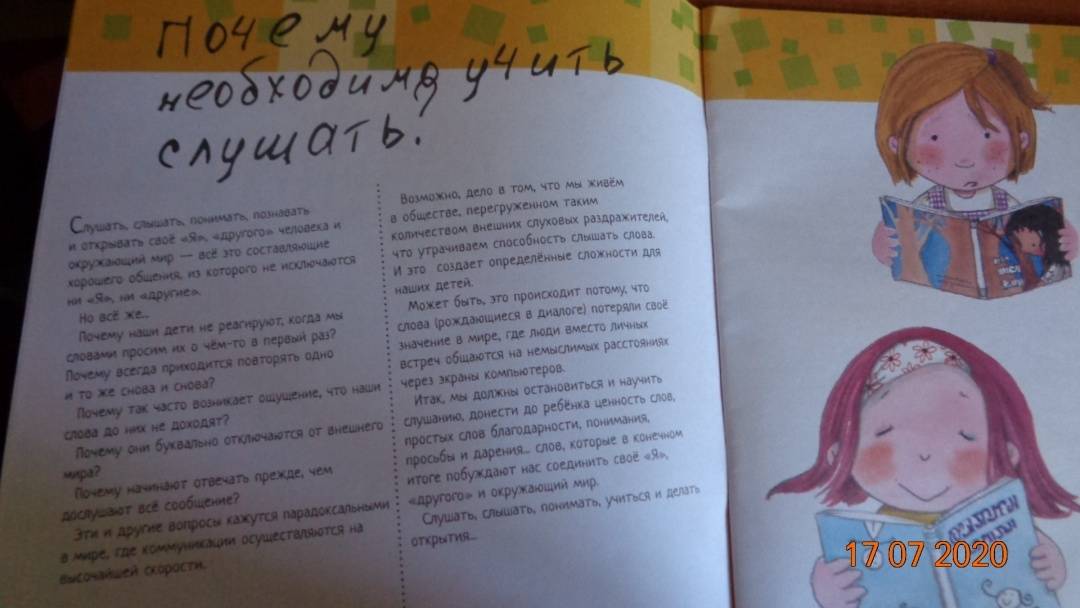 Почему
необходимо учить
слушать?
Слушать, слышать, понимать, познавать
и открывать своё «Я», «другого» человека и
окружающий мир — всё это составляющие
хорошего общения, из которого не исключаются
ни «Я», ни «другие».
Но всё же...
Почему наши дети не реагируют, когда мы
словами просим их о чём-то в первый раз?
Почему всегда приходится повторять одно
и то же снова и снова?
Почему так часто возникает ощущение, что наши
слова до них не доходят?
Почему они буквально отключаются от внешнего
мира?
Почему начинают отвечать прежде, чем
дослушают всё сообщение?
Эти и другие вопросы кажутся парадоксальными
в мире, где коммуникации осуществляются на
высочайшей скорости.
Возможно, дело в том, что мы живём
в обществе, перегруженном таким
количеством внешних слуховых раздражителей,
что утрачиваем способность слышать слова.
И это создает определённые сложности для
наших детей.
Может быть, это происходит потому, что
слова (рождающиеся в диалоге) потеряли своё
значение в мире, где люди вместо личных
встреч общаются на немыслимых расстояниях
через экраны компьютеров.
Итак, мы должны остановиться и научить
слушанию, донести до ребёнка ценность слов,
простых слов благодарности, понимания,
просьбы и дарения... слов, которые в конечном
итоге побуждают нас соединить своё «Я»,
«другого» и окружающий мир.
Слушать, слышать, понимать, учиться и делать
открытия...
17 07 2020